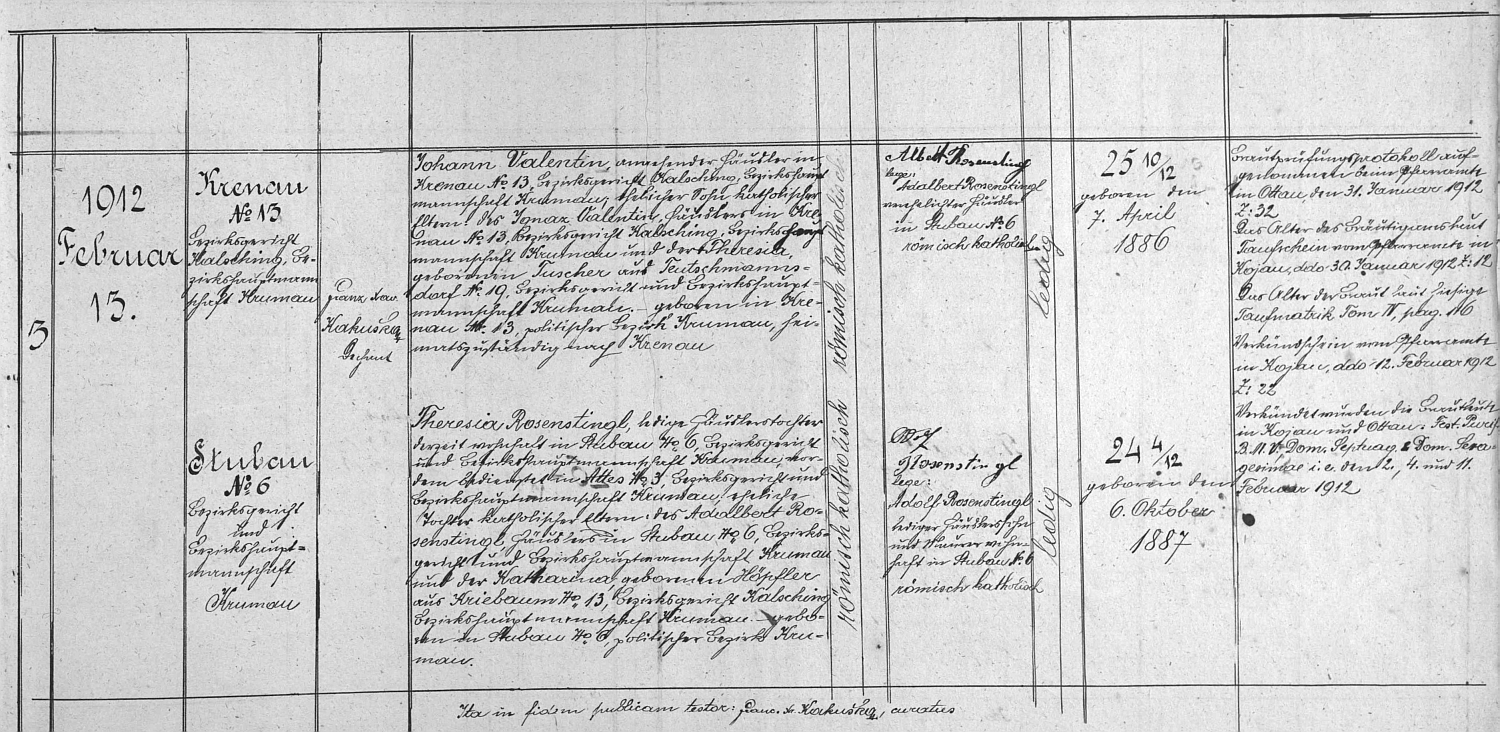 5
1912
Februar
13.
Krenau
No 13
Bezirksgericht
Kalsching, Be-
zirkshauptmann
schaft Krumau
Franz Xav.
Kakuška
Dechant
Johann Valentin, angehender Häusler in
Krenau No 13, Bezirksgericht Kalsching, Bezirkshaupt
mannschaft Krumau, ehelicher Sohn katholischer
Eltern: des Ignaz Valentin, Häuslers in Kre-
nau No 13, Bezirksgericht Kalsching, Bezirkshaupt
mannschaft Krumau und der Theresia,
geborenen Tuscher aus Teutschmanns-
dorf No 19, Bezirksgericht und Bezirkshaupt-
mannschaft Krumau, – geboren in Kre-
nau No 13, politischer Bezirk Krumau, hei-
matszuständig nach Krenau
römisch katholisch
Albert Rosenstingl
lege:
Adalbert Rosenstingl
verehelichter Häusler
in Stubau No 6
römisch katholisch
ledig
25 10/12
geboren den
7. April
1886
Brautprüfungsprotokoll auf-
genommen beim Pfarramte
in Ottau, den 31. Januar 1912
Z: 32
Das Alter des Bräutigams laut
Taufschein vom Pfarramte in
Kojau, ddo 30. Januar 1912 Z: 12
Das Alter der Braut laut hiesige
Taufmatrik Tom IV, pag. 116
Verkündschein vom Pfarramte
in Kojau, ddo 12. Februar 1912
Z: 22
Verkündet wurden die Brautleute
in Kojau und Ottau: Fest. Purif.
B. M. V. Dom. Septuag. & Dom. Sexa-
gesimae i. e. den 2., 4. und 11.
Februar 1912
Stubau
No 6
Bezirksgericht
und
Bezirkshaupt=
mannschaft
Krumau
Theresia Rosenstingl, ledige Häuslerstochter
derzeit wohnhaft in Stubau No 6, Bezirksgericht
und Bezirkshauptmannschaft Krumau, vor-
dem bedienstet in Attes No 3, Bezirksgericht und
Bezirkshauptmannschaft Krumau, eheliche
Tochter katholischer Eltern: des Adalbert Ro-
senstingl, Häuslers in Stubau No 6, Bezirks-
gericht und Bezirkshauptmannschaft Krumau
und der Katharina, geborenen Höpfler
aus Kriebaum No 13, Bezirksgericht Kalsching
Bezirkshauptmannschaft Krumau. – gebo-
ren in Stubau No 6, politischer Bezirk Kru-
mau.
römisch katholisch
Adolf
Rosenstingl
lege:
Adolf Rosenstingl
lediger Häuslerssohn
und Maurer wohn-
haft in Stubau No 6
römisch katholisch
ledig
24 4/12
geboren den
6. Oktober
1887
Ita in fidem publicam testor: Franc. X. Kakuška, curatus